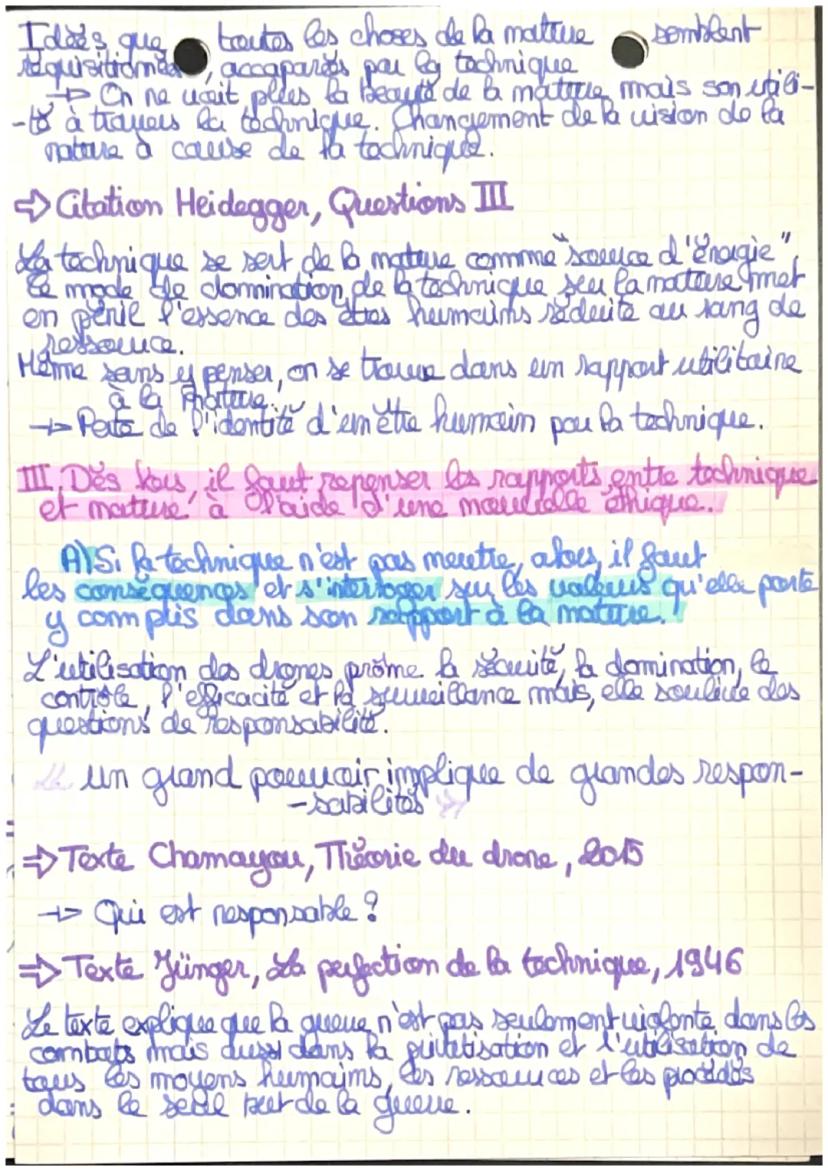 Idées que toutes les choses de la nature semblent
réquisitionnées, accaparés par la technique
→ On ne voit plus la beauté de la nature mais son utili-
-té à travers la technique. Changement de la vision de la
nature à cause de la technique.
⇒ Citation Heidegger, Questions III
La technique se sert de la nature comme "source d'énergie",
le mode de domination de la technique sur la nature met
en péril l'essence des êtres humains réduite au rang de
ressource.
Même sans y penser, on se trouve dans un rapport utilitaire
à la nature.
→ Perte de l'identité d'un être humain par la technique.
III. Dès lors, il faut repenser les rapports entre technique
et nature, à l'aide d'une nouvelle éthique.
A) Si la technique n'est pas neutre, alors, il faut
les conséquences et s'interroger sur les valeurs qu'elle porte
y compris dans son rapport à la nature.
L'utilisation des drones prône la sécurité, la domination, le
contrôle, l'efficacité et la surveillance mais, elle soulève des
questions de responsabilité.
un grand pouvoir implique de grandes respon-
-sabilités
⇒ Texte Chamayou, Théorie du drone, 2015
→ Qui est responsable ?
⇒ Texte Jünger, La perfection de la technique, 1946
Le texte explique que la guerre n'est pas seulement violente dans les
combats mais aussi dans la et l'utilisation de
tous les moyens humains, les ressources et les procédés
dans le seul but de la guerre.